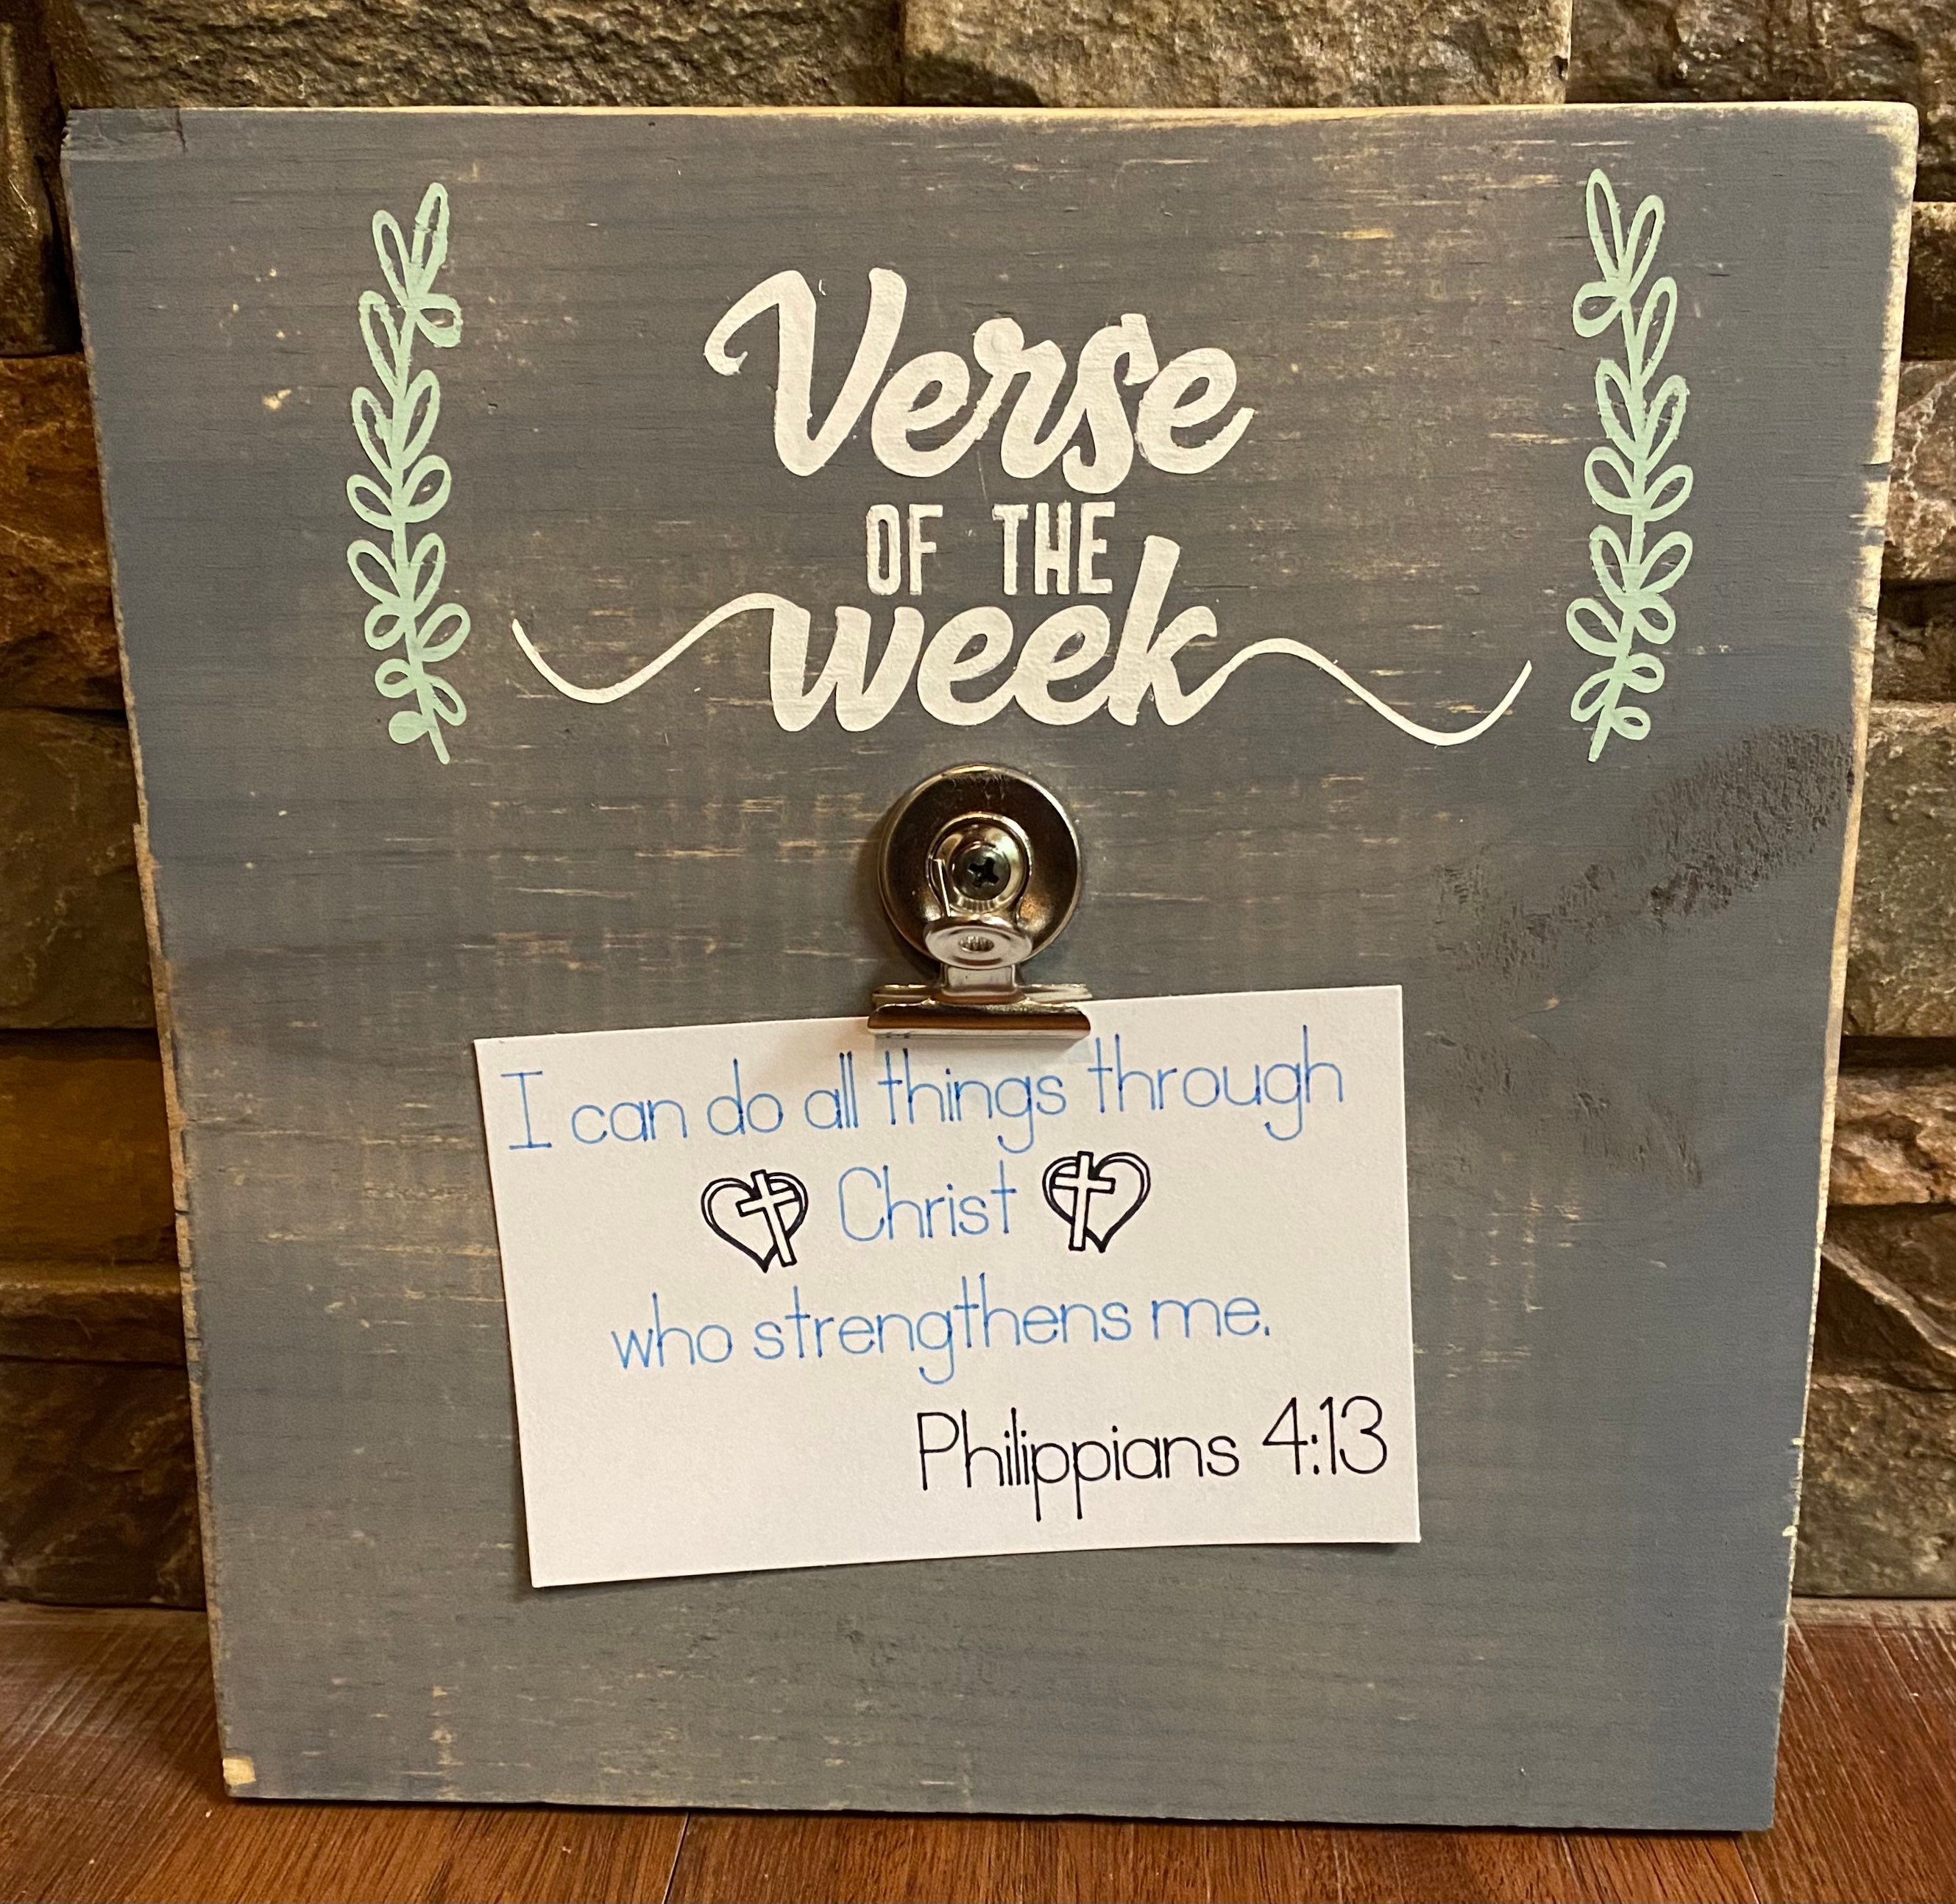 Verse
OF THE
week
I can do all things through
Christ
who strengthens me.
Philippians 4:13